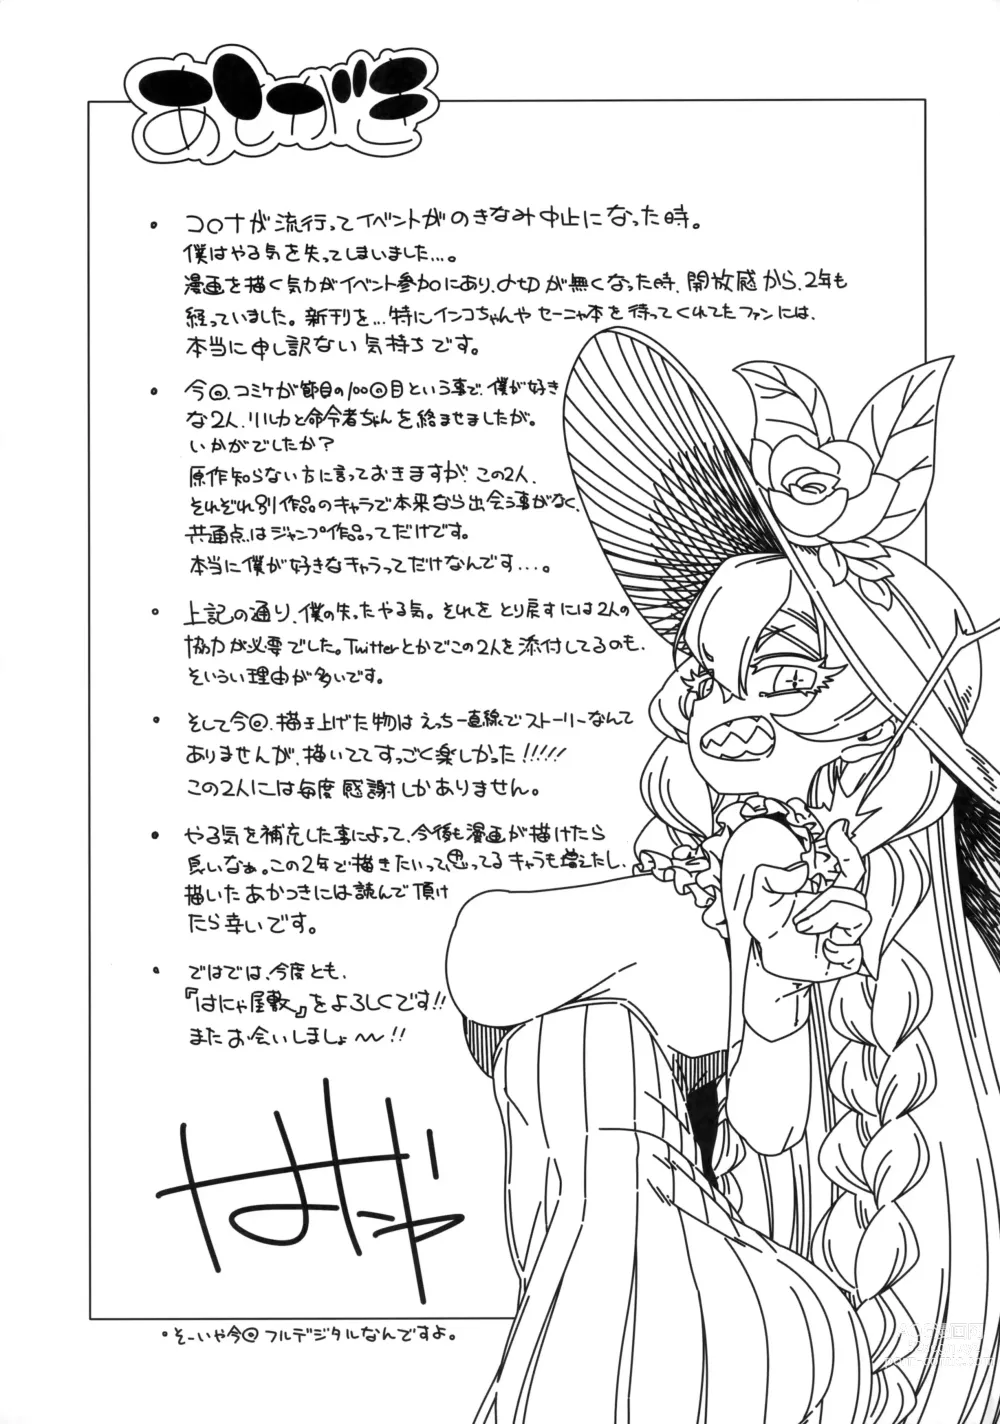 あとがき
・コロナが流行ってイベントがのきなみ中止になった時。
僕はやる気を失ってしまいました...。
漫画を描く気力がイベント参加にあり、〆切が無くなった時、開放感から、2年も
経っていました。新刊を...特にインコちゃんやセーニャ本を待ってくれてたファンには、
本当に申し訳ない気持ちです。
・今回、コミケが節目の100回目という事で、僕が好き
な2人、リルカと命令者ちゃんを絡ませましたが。
いかがでしたか?
原作知らない方に言っておきますが、この2人、
それぞれ別作品のキャラで本来なら出会う事がなく、
共通点はジャンプ作品ってだけです。
本当に僕が好きなキャラってだけなんです...。
・上記の通り、僕の失ったやる気。それをとり戻すには2人の
協力が必要でした。Twitterとかでこの2人を添付してるのも、
そいうい理由が多いです。
・そして今回、描き上げた物はえっち一直線でストーリーなんて
ありませんが、描いててすっごく楽しかった!!!!!
この2人には毎度感謝しかありません。
・やる気を補充した事によって、今後も漫画が描けたら
良いなぁ。この2年で描きたいって思ってるキャラも増えたし、
描いたあかつきには読んで頂け
たら幸いです。
・ではでは、今度とも、
『はにゃ屋敷』をよろしくです!!
またお会いしましょ〜!!
はなにゃ
・そーいや今回フルデジタルなんですよ。